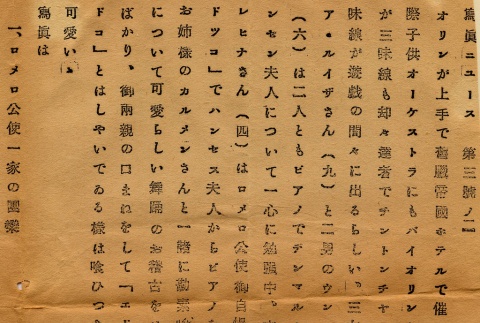 寫眞ニユース 第三號ノ二
オリンが上手で舊臘帝國ホテルで催
際子供オーケストラにもバイオリン
が三味線も却々達者でチントンチヤ
味線が遊戯の間々に出るらしい。三女
ア・ルイザさん(九)と二男のウン
(六)は二人ともピアノでデンマル
ンセン夫人について一心に勉强中。末
レヒナさん(四)はロメロ公使御自慢
ドツコ」でハンセス夫人からピアノを
お姉様のカルメンさんと一緒に勘素
について可愛らしい舞踊のお稽古を
ばかり、御兩親の口まねをして「エド
ドコ」とはしやいでゐる様は喰ひつき
可愛い。
寫眞は
一、ロメロ公使一家の團欒